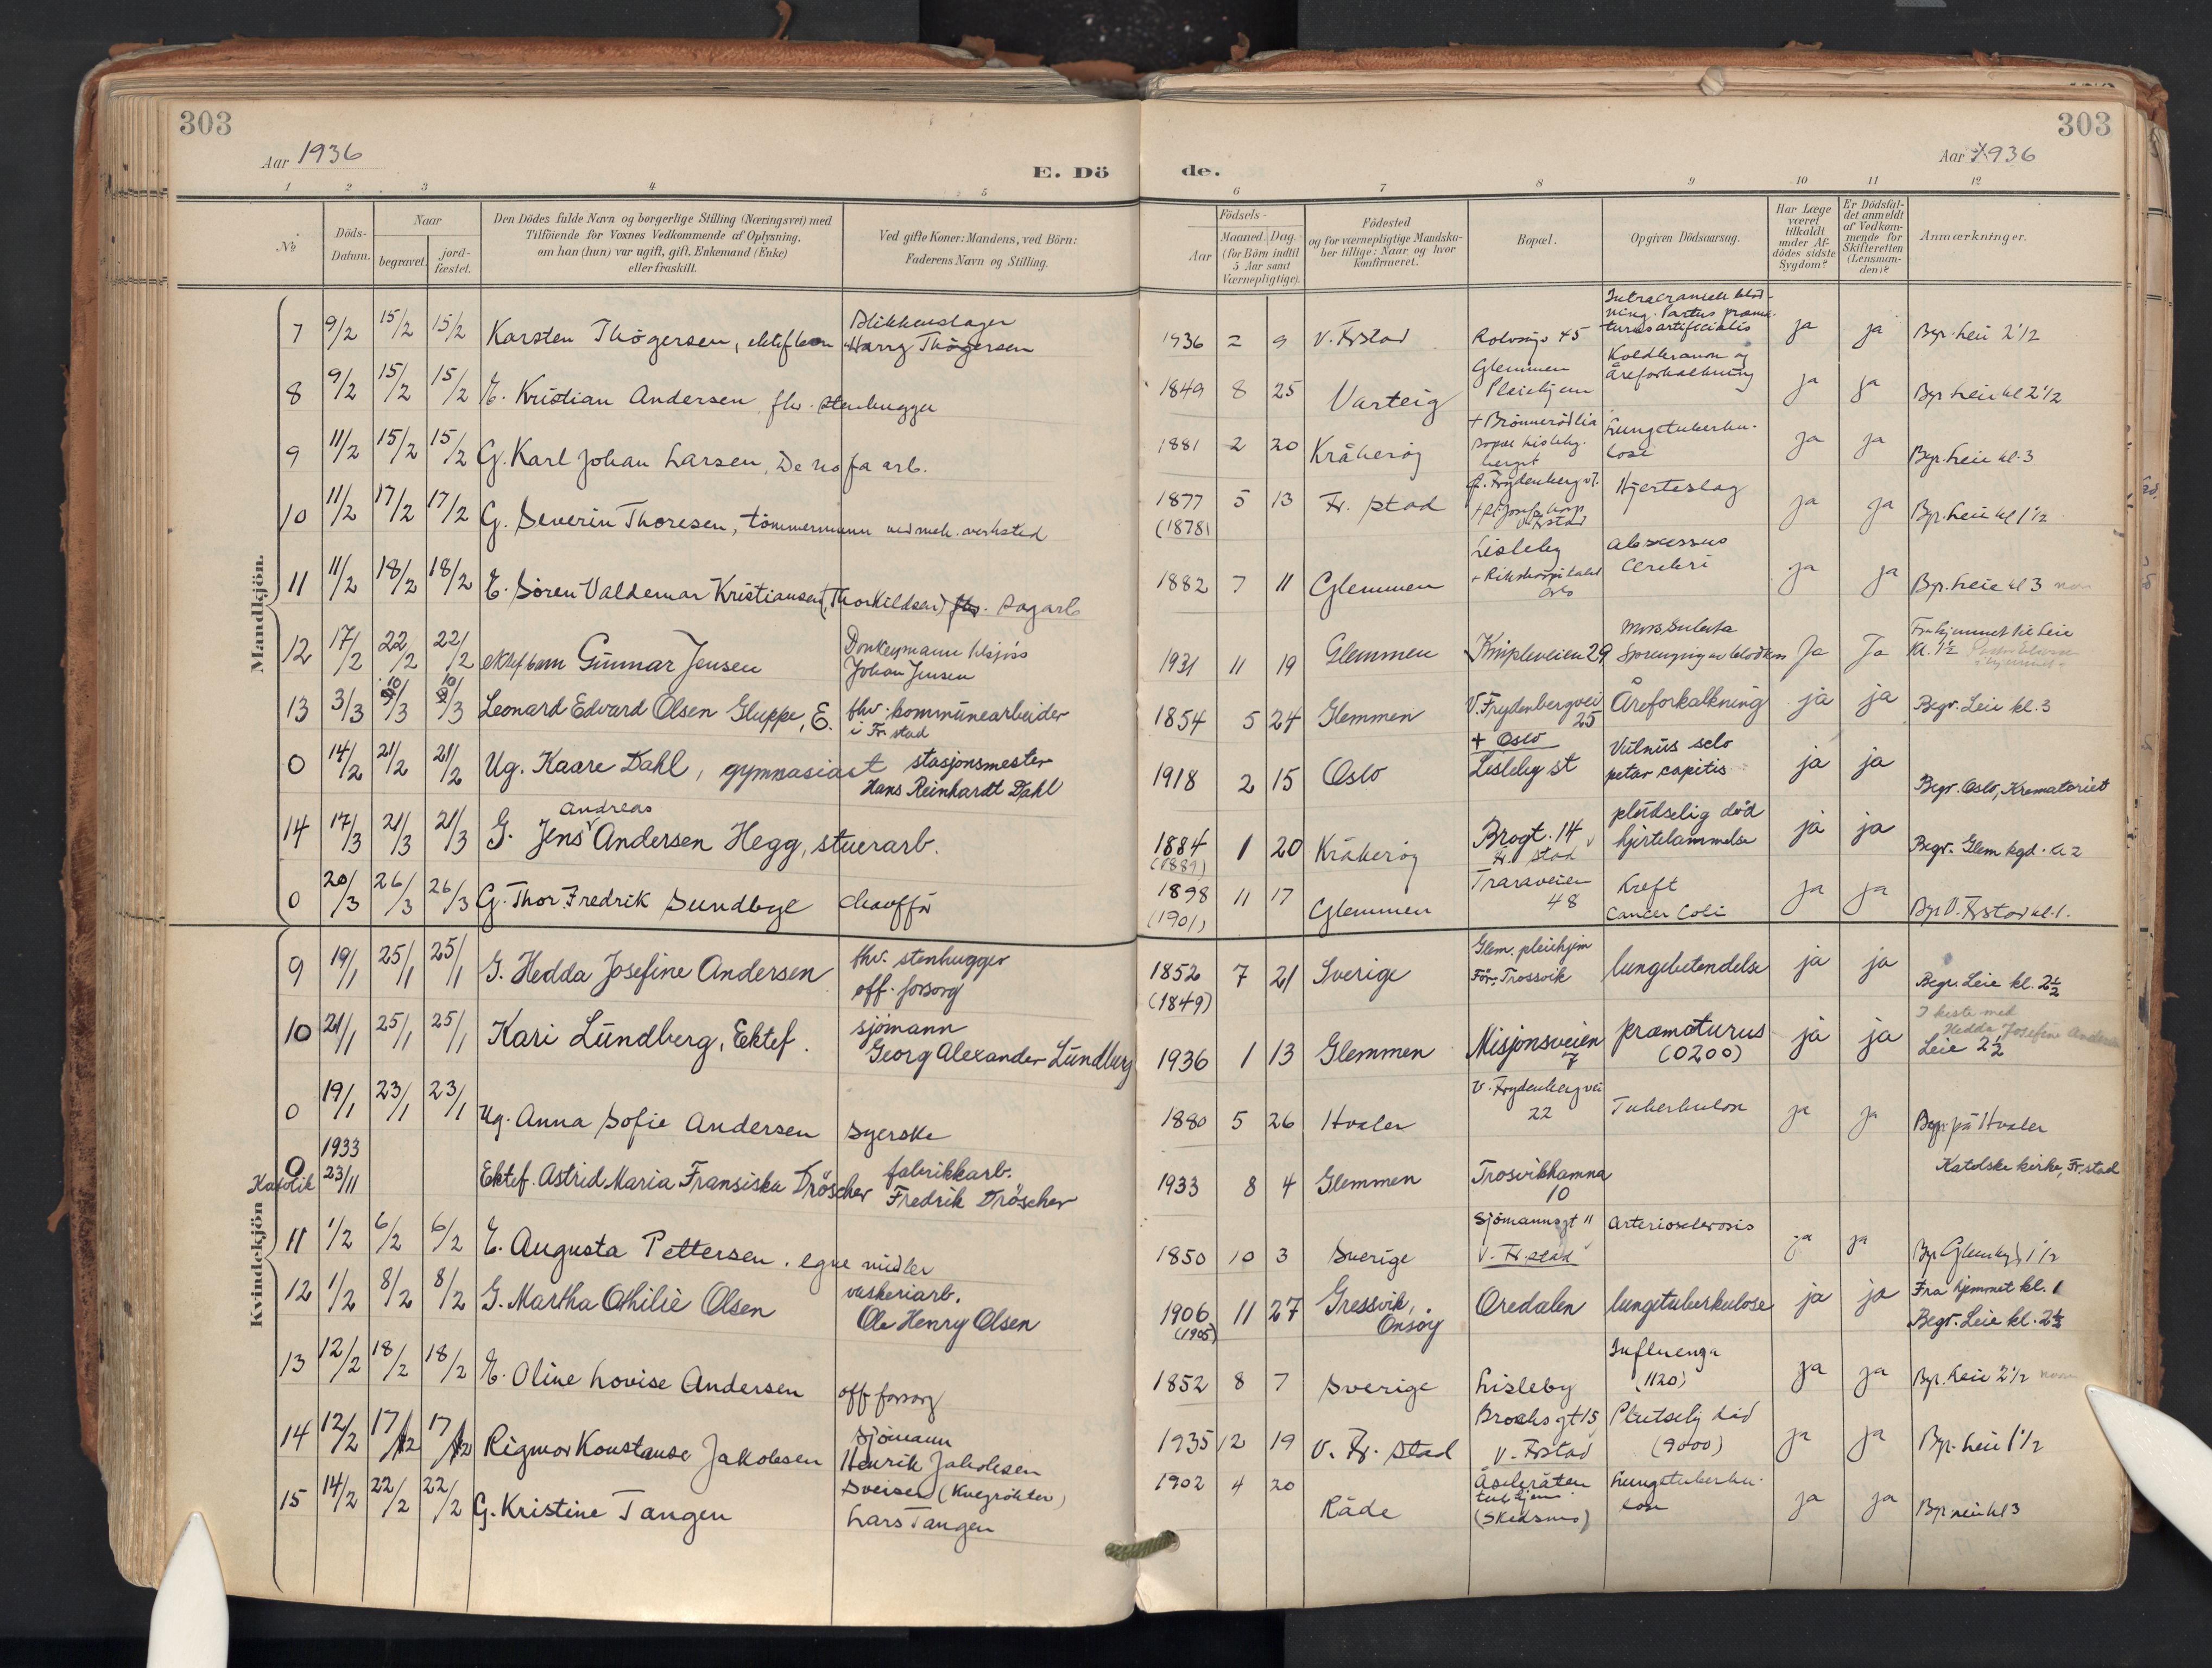 303
303
Aar 1936
E. Dö
de.
Aar 1936
1 2 3 4 5 6 7 8 9 10 11 12
No
Döds-
Datum.
Naar
begravet.
jord-
fæstet.
Den Dödes fulde Navn og borgerlige Stilling (Næringsvei) med
Tilföiende for Voxnes Vedkommende af Oplysning,
om han (hun) var ugift, gift, Enkemand (Enke)
eller fraskilt.
Ved gifte Koner: Mandens, ved Börn:
Faderens Navn og Stilling.
Födsels-
Aar
Maaned. Dag.
(for Börn indtil
5 Aar samt
Værnepligtige).
Födested
og for værnepligtige Mandska-
ber tillige: Naar og hvor
konfirmeret.
Bopæl.
Opgiven Dödsaarsag.
Har Læge
været
tilkaldt
under Af-
dödes sidste
Sygdom?
Er Dödsfal-
det anmeldt
af Vedkom-
mende for
Skifteretten
(Lensman-
den)?
Anmærkninger.
Mandkjön.
7 9/2 15/2 15/2 Karsten Thögersen, ektef barn
Blikkenslager
Harry Thögersen
1936 2 9 V. Frstad
Rolvsöyv 45
Intracraniell blöd-
ning. Partus præma-
turus artificialis
ja ja Bgr. Leie 2 1/2
8 9/2 15/2 15/2 E. Kristian Andersen fhv. stenhugger
1849 8 25 Varteig
Glemmen
Pleiehjem
Koldbrann og
Åreforkalkning
ja ja Bgr. Leie kl 2 1/2
9 11/2 15/2 15/2 G. Karl Johan Larsen, De no fa arb.
1881 2 20 Kråkeröy
+ Brönnerödlia
bopæl Lisleby-
berget
Lungetuberku-
lose
ja ja Bgr. Leie kl. 3
10 11/2 17/2 17/2 G. Severin Thoresen, tömmermann ved mek. verksted
1877 5 13
(1878)
Fr. stad
Frydenbergv 1.
+ St Josefs hosp
V. Frstad
Hjerteslag
ja ja Bgr. Leie kl 1 1/2
11 11/2 18/2 18/2 E. Sören Valdemar Kristiansen (Thorkildsen) fhv. sagarb
1882 7 11 Glemmen
Lisleby
+ Rikshospitalet
Oslo
abscessus
cerebri
ja ja Bgr. Leie kl 3
12 17/2 22/2 22/2 ektef barn Gunnar Jensen
Donkeymann tilsjös
Johan Jensen
1931 11 19 Glemmen Knipleveien 29
Mors subita
Sprengning av blodkar
Ja Ja
Fra hjemmet til Leie
kl. 1 1/2
13 3/3 10/3 10/3 Leonard Edvard Olsen Gluppe, E.
fhv. kommunearbeider
i Fr.stad
1854 5 24 Glemmen
V. Frydenbergvei
25
Åreforkalkning ja ja Begr. Leie kl. 3
0 14/2 21/2 21/2 Ug. Kaare Dahl, gymnasiast
stasjonsmester
Hans Reinhardt Dahl
1918 2 15 Oslo
+ Oslo
Lisleby st
Vulnus sclo
petar capitis
ja ja Begr. Oslo, Krematoriet
14 17/3 21/3 21/3 G. Jens Andreas Andersen Hegg, stuerarb.
1884 1 20
(1889)
Kråkeröy
Brogt. 14
Fr. stad
plutselig död
hjertelammelse
ja ja Begr. Glem kgd. kl 2
0 20/3 26/3 26/3 G. Thor Fredrik Sundbye chaufför
1898 11 17
(1901)
Glemmen
Traraveien
48
Kreft
Cancer Coli
ja ja Bgr V. Frstad kl. 1.
Kvindekjön
9 19/1 25/1 25/1 G. Hedda Josefine Andersen
fhv. stenhugger
off. forsorg
1852 7 21
(1849)
Sverige
Glem. pleiehjem
För: Trossvik
lungebetendelse
ja ja Begr. Leie kl. 2 1/2
10 21/1 25/1 25/1 Kari Lundberg, Ektef.
sjömann
Georg Alexander Lundberg
1936 1 13 Glemmen
Misjonsveien
7
præmaturus
(0200)
ja ja
I kiste med
Hedda Josefine Andersen
Leie 2 1/2
0 19/1 23/1 23/1 Ug. Anna Sofie Andersen syerske
1880 5 26 Hvaler
V. Frydenbergvei
22
Tuberkulose
ja ja Begr. på Hvaler
0
Katolik
1933
23/11
Ektef. Astrid Maria Fransiska Dröscher
fabrikkarb.
Fredrik Dröscher
1933 8 4 Glemmen
Trosvikhamna
10
Katolske kirke, Fr.stad
11 1/2 6/2 6/2 E. Augusta Pettersen. egne midler
1850 10 3 Sverige
Sjömannsgt 11
V. Fr.stad
Arteriosclerosis
ja ja Bgr Glemkgd 1 1/2
12 1/2 8/2 8/2 G. Martha Othilie Olsen
vaskeriarb.
Ole Henry Olsen
1906 11 27
(1905)
Gressvik,
Onsöy
Oredalen lungetuberkulose ja ja
Fra hjemmet kl. 1
Begr. Leie kl. 2 1/2
13 12/2 18/2 18/2 E. Oline Lovise Andersen
off forsorg
1852 8 7 Sverige Lisleby
Influenza
(1120)
ja ja Bgr. Leie 2 1/2
14 12/2 17/2 17/2 Rigmor Konstanse Jakobsen
Sjömann
Henrik Jakobsen
1935 12 19 V. Fr. stad
Brochsgt 15
V. Frstad
Plutselig död
(9000)
ja ja Bgr. Leie 1 1/2
15 14/2 22/2 22/2 G. Kristine Tangen
Sveiser (Kvegrökter)
Lars Tangen
1902 4 20 Råde
Åsebråten
tub.hjem
(Skedsmo)
Lungetuberku-
lose
ja ja Bgr Leie kl 3